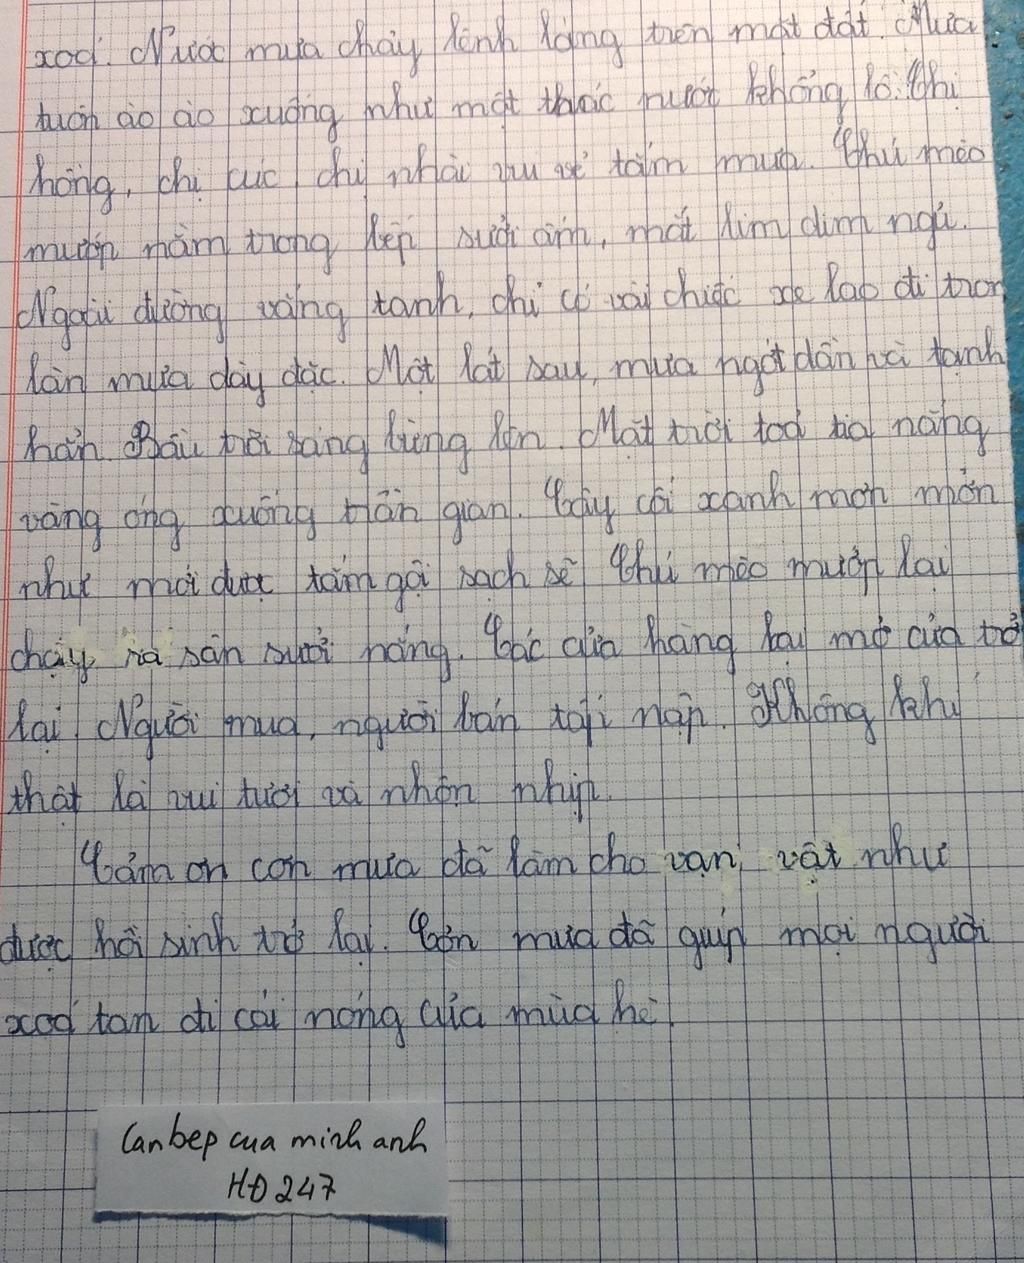 xoá. Nước mưa chảy lênh láng trên mặt đất. Mưa
tuôn ào ào xuống như một thác nước khổng lồ. Chị
hồng, chị cúc, chị nhài vui vẻ tắm mưa. Chú mèo
mướp nằm trong bếp sưởi ấm, mắt lim dim ngủ.
Ngoài đường vắng tanh, chỉ có vài chiếc xe lao đi tron
làn mưa dày đặc. Một lát sau, mưa ngớt dần và tạnh
hẳn. Bầu trời sáng bừng lên. Mặt trời toả tia nắng
vàng óng xuống trần gian. Cây cối xanh mơn mởn
như mới được tắm gội sạch sẽ. Chú mèo mướp lại
chạy ra sân sưởi nắng. Các cửa hàng lại mở cửa trở
lại. Người mua, người bán tấp nập. Không khí
thật là vui tươi và nhộn nhịp.
Cảm ơn cơn mưa đã làm cho vạn vật như
được hồi sinh trở lại. Cơn mưa đã giúp mọi người
xoá tan đi cái nóng của mùa hè.
Canbep cua minh anh
HĐ 247